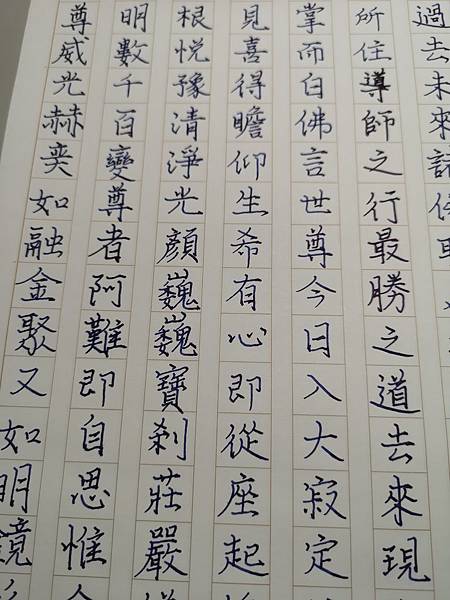 尊威光赫奕如融金聚又如明鏡
明數千百變尊者阿難即自思惟
根悅豫清淨光顏巍巍寶剎莊嚴
見喜得瞻仰生希有心即從座起
掌而白佛言世尊今日入大寂定
所住導師之行最勝之道去來現
過去未來